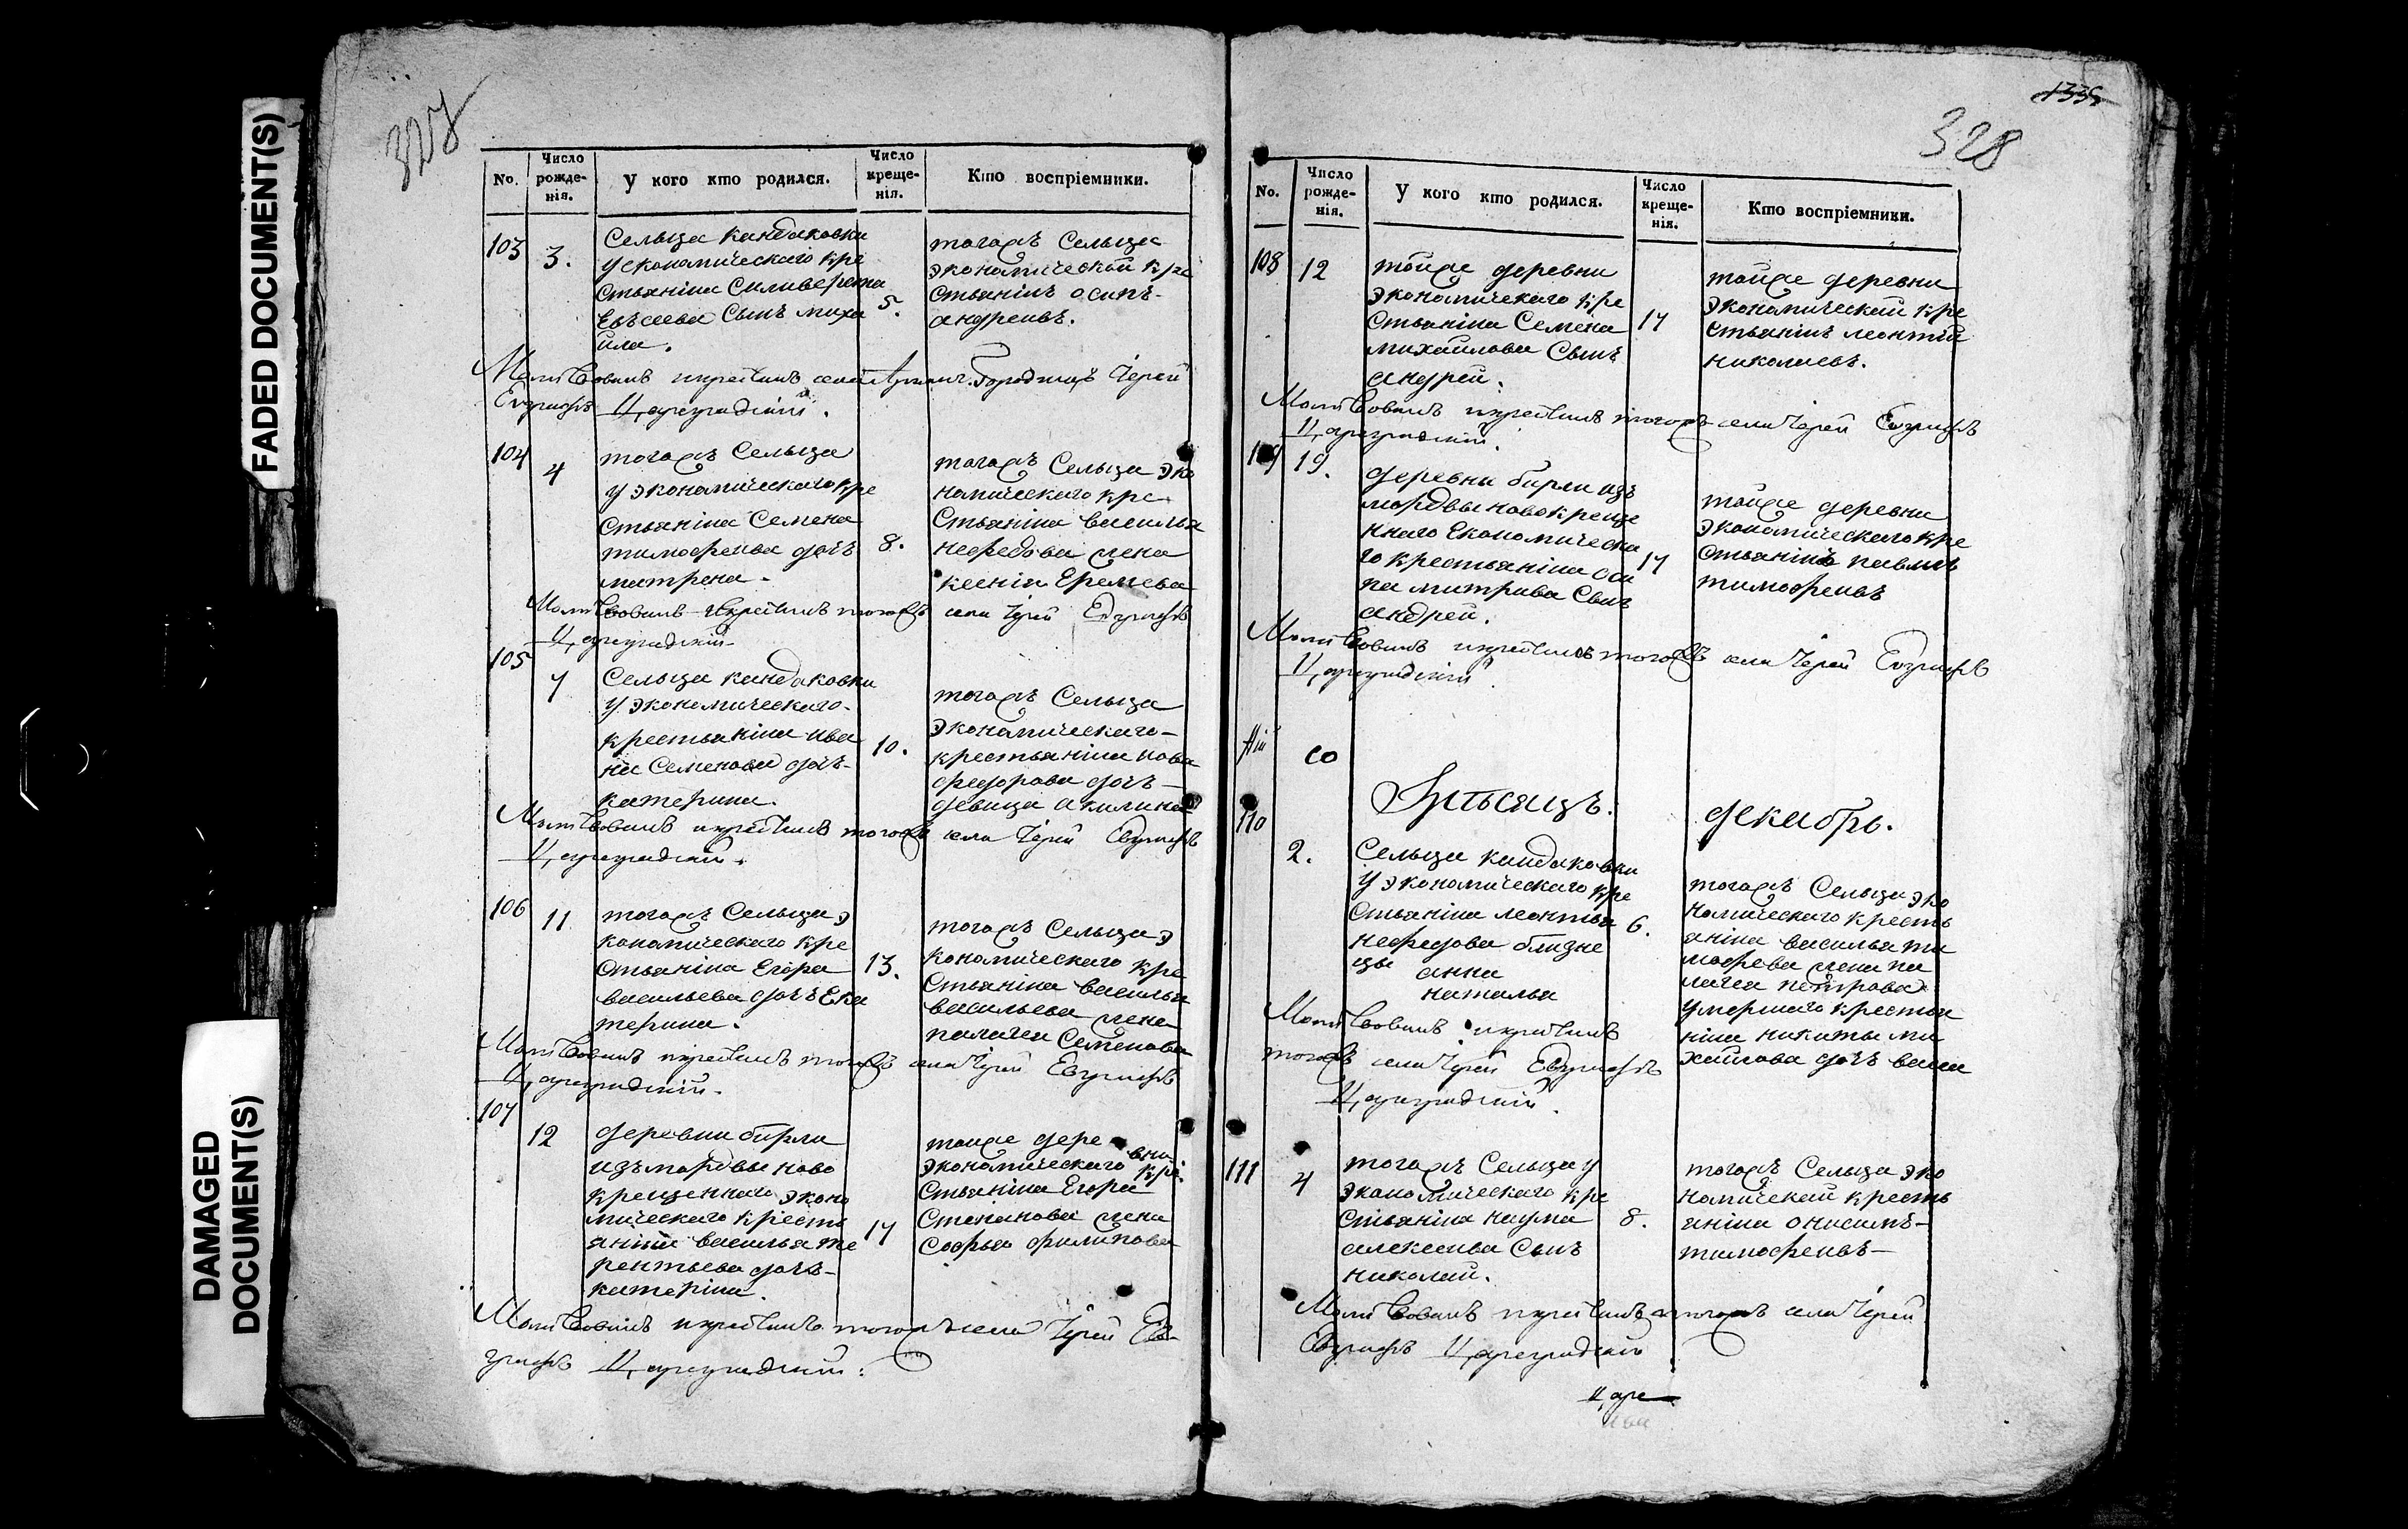 FADED DOCUMENT(S)
DAMAGED
DOCUMENT(S)
327
No.
Число рожде-нія.
У кого кто родился.
Число креще-нія.
Кто воспріемники.
103
3.
Сельца кандаковки
у економическаго кре
стьянина Силиверста
Евъсеева Сынъ миха
ила.
5.
тогожъ Сельца
экономической кре
стьянінъ осипъ
андреивъ.
Молитвовалъ икрестилъ села Городищъ Иерей
Евграфъ Цареградскій.
104
4
тогожъ Сельца
у экономическаго кре
стьяніна Семена
тимофеива дочь
матрена.
8.
тогожъ Сельца эко
номическаго кре
стьяніна василья
нефедова жена
ксения Еремева
Молитвовалъ икрестилъ тогожъ села Иерей Евграфъ
Цареградскій
105
7
Сельца кандаковки
у экономическаго
крестьяніна ива
на Семенова дочь
катерина.
10.
тогожъ Сельца
экономическаго
крестьяніна
федорова дочь
девица акилина
Молитвовалъ икрестилъ тогожъ села Иерей Евграфъ
Цареградскій.
106
11
тогожъ Сельца э
кономическаго кре
стьяніна Егора
васильева дочь Ека
терина.
13.
тогожъ Сельца э
кономическаго кре
стьяніна василья
васильева жена
палагея Семенова
Молитвовалъ икрестилъ тогожъ села Иерей Евграфъ
Цареградскій.
107
12
деревни бирли
изъ мордвы ново
крещеннаго эконо
мическаго кресть
яніна василья те
рентьева дочь
катеріна.
17
тоиже деревни
экономическаго кре
стьяніна Егора
Степанова жена
Софья филипова
Молитвовалъ икрестилъ тогожъ села Иерей Ев
графъ Цареградскій.
1335
328
No.
Число рожде-нія.
У кого кто родился.
Число креще-нія.
Кто воспріемники.
108
12
тоиже деревни
экономическаго кре
стьяніна Семена
михайлова Сынъ
андрей.
17
тоиже деревни
экономической кре
стьянінъ леонтій
николаевъ.
Молитвовалъ икрестилъ тогожъ села Иерей Евграфъ
Цареградскій.
109
19.
деревни бирли изъ
мордвы новокреще
ннаго Економическа
го крестьяніна оси
па митрива Сынъ
андрей.
17
тоиже деревни
экономическаго кре
стьянінъ павелъ
тимофеивъ
Молитвовалъ икрестилъ тогожъ села Иерей Евграфъ
Цареградскій
со
Мѣсяцъ.
декабрь.
110
2.
Сельца кандаковки
у экономическаго кре
стьяніна леонтья
нефедова близне
цы анна
наталья
6.
тогожъ Сельца эко
номическаго кресть
яніна василья ти
мофева жена па
лагея петрова
умершаго крестья
ніна никиты ми
хаилова дочь васи
Молитвовалъ икрестилъ
тогожъ села Иерей Евграфъ
Цареградскій.
111
4
тогожъ Сельца у
экономическаго кре
стьяніна наума
алексеива Сынъ
николай.
8.
тогожъ Сельца эко
номической кресть
янінъ онисимъ
тимофеивъ
Молитвовалъ икрестилъ тогожъ села Иерей
Евграфъ Цареградскій
Царе